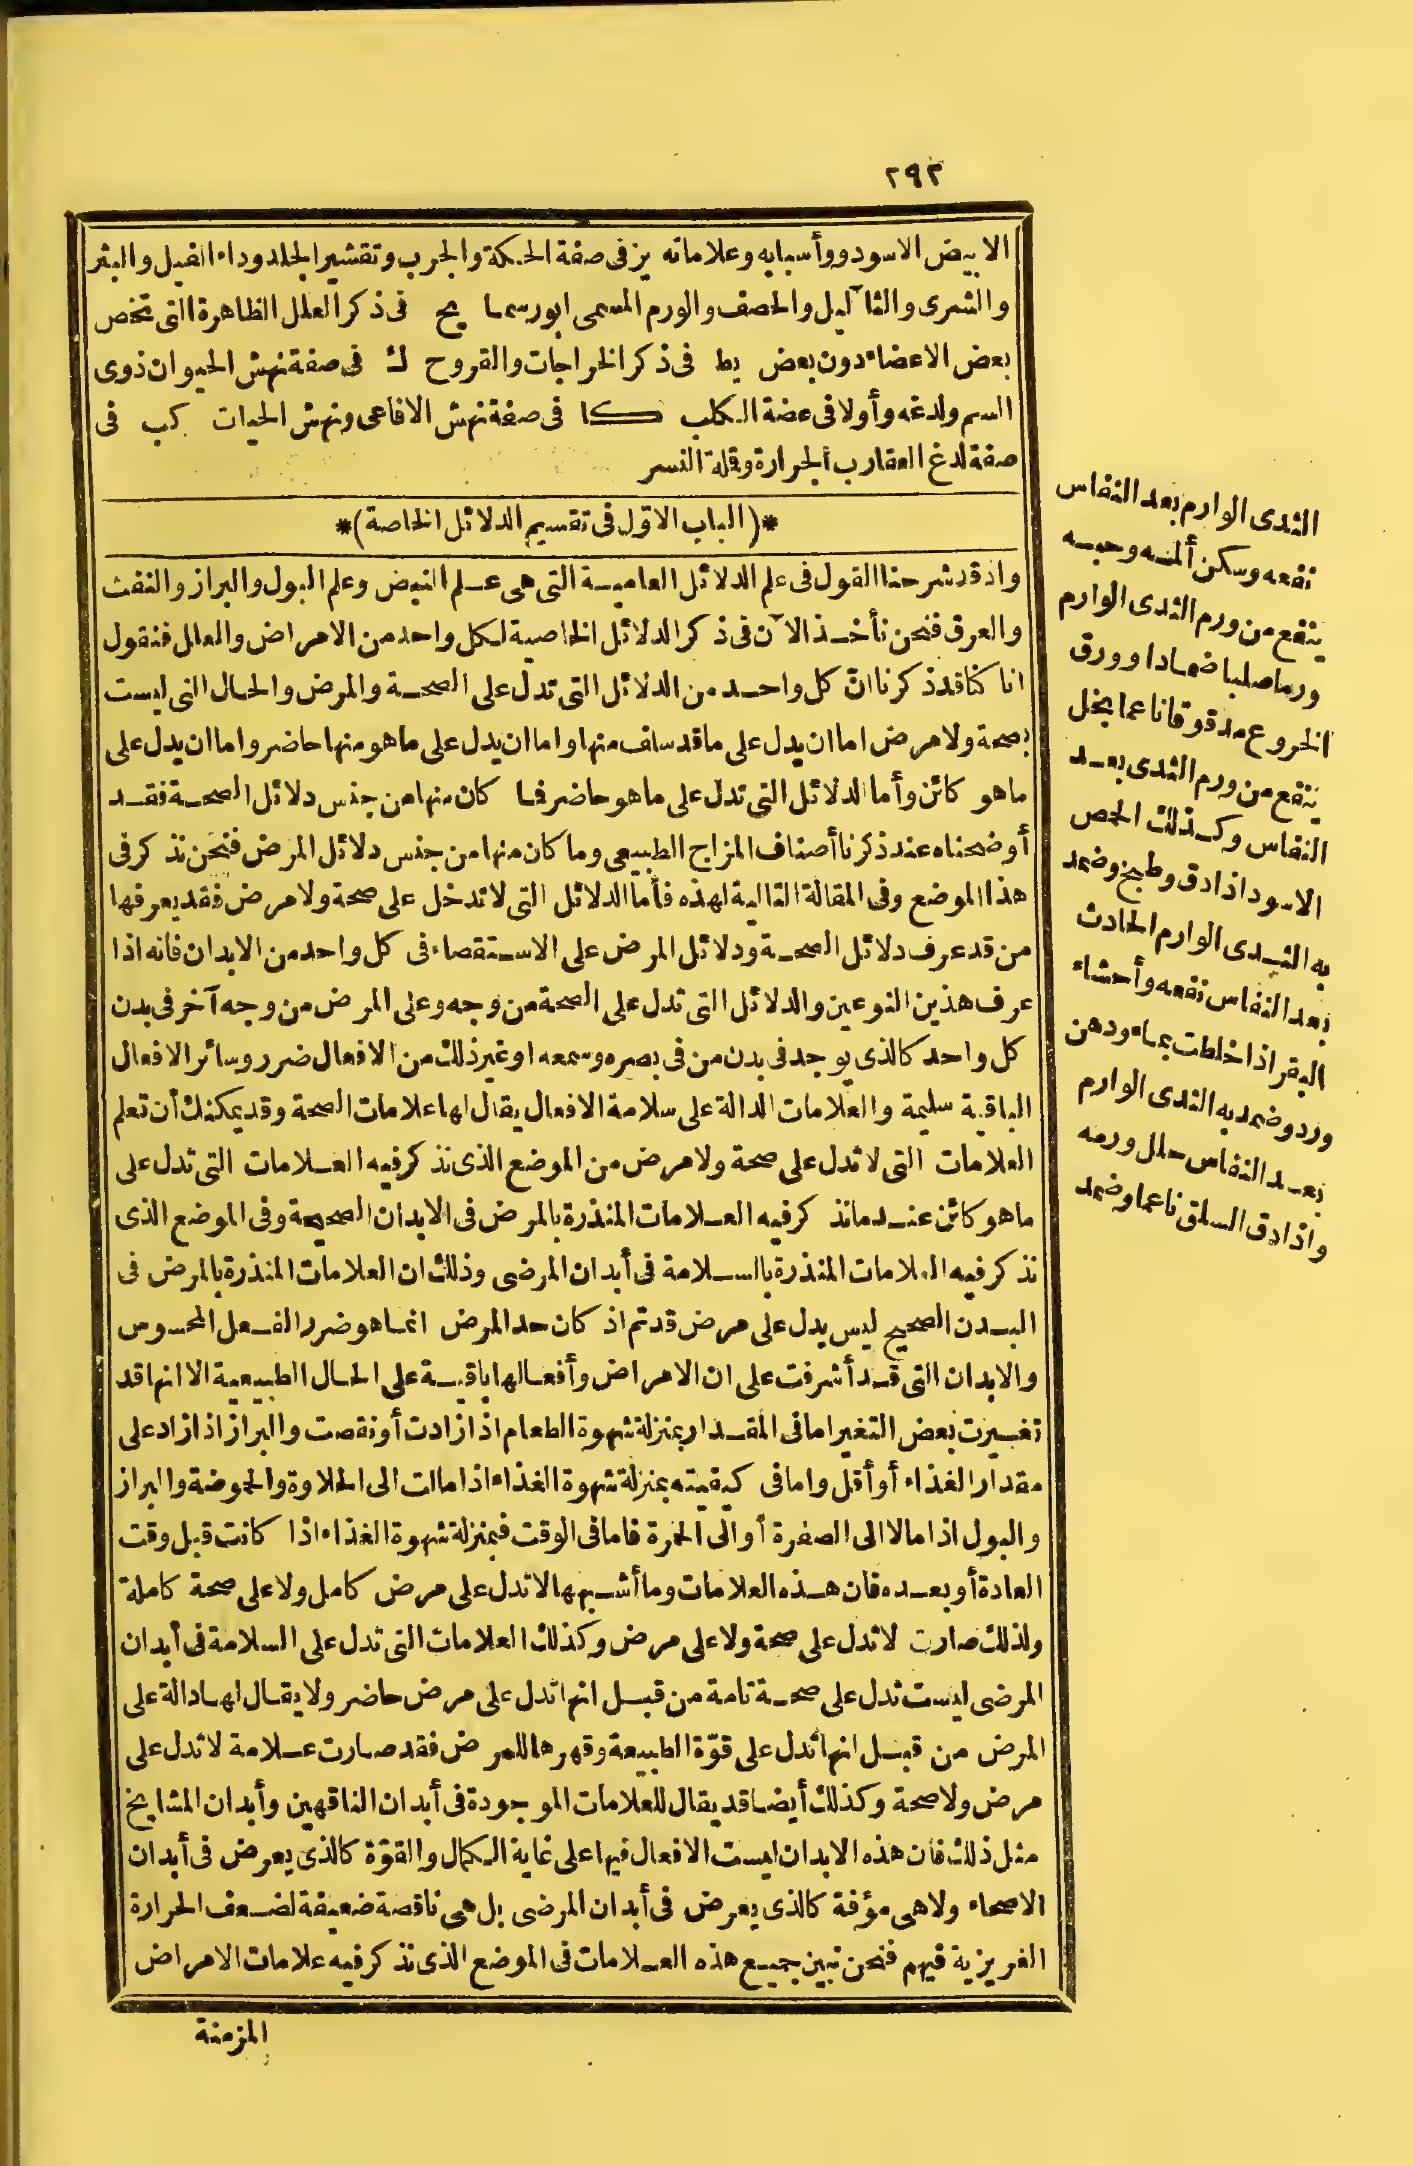 ٢٩٢
الابيض الاسود وأسبابه وعلاماته يز فى صفة الحكة والجرب وتقشير الجلد وداء الفيل والبثر
والشرى والثآليل والحصف والورم المسمى ابورسما يح فى ذكر العلل الظاهرة التى تخص
بعض الاعضاء دون بعض يط فى ذكر الخراجات والقروح ك فى صفة نهش الحيوان ذوى
السم ولدغه وأولا فى عضة الكلب كا فى صفة نهش الافاعى ونهش الحيات كب فى
صفة لدغ العقارب الجرارة وقلة النسر
*(الباب الاوّل فى تقسيم الدلائل الخاصة)*
واذ قد شرحنا القول فى علم الدلائل العامية التى هى علم النبض وعلم البول والبراز والنفث
والعرق فنحن نأخذ الآن فى ذكر الدلائل الخاصية لكل واحد من الامراض والعلل فنقول
انا كنا قد ذكرنا انّ كل واحد من الدلائل التى تدل على الصحة والمرض والحال التى ليست
بصحة ولا مرض اما ان يدل على ما قد سلف منها واما ان يدل على ما هو منها حاضر واما ان يدل على
ما هو كائن وأما الدلائل التى تدل على ما هو حاضر فما كان منها من جنس دلائل الصحة فقد
أوضحناه عند ذكرنا أصناف المزاج الطبيعى وما كان منها من جنس دلائل المرض فنحن نذكر فى
هذا الموضع وفى المقالة التالية لهذه فأما الدلائل التى لا تدخل على صحة ولا مرض فقد يعرفها
من قد عرف دلائل الصحة ودلائل المرض على الاستقصاء فى كل واحد من الابدان فانه اذا
عرف هذين النوعين والدلائل التى تدل على الصحة من وجه وعلى المرض من وجه آخر فى بدن
كل واحد كالذى يوجد فى بدن من فى بصره وسمعه او غير ذلك من الافعال ضرر وسائر الافعال
الباقية سليمة والعلامات الدالة على سلامة الافعال يقال لها علامات الصحة وقد يمكنك أن تعلم
العلامات التى لا تدل على صحة ولا مرض من الموضع الذى نذكر فيه العلامات التى تدل على
ما هو كائن عند ما نذكر فيه العلامات المنذرة بالمرض فى الابدان الصحيحة وفى الموضع الذى
نذكر فيه العلامات المنذرة بالسلامة فى أبدان المرضى وذلك ان العلامات المنذرة بالمرض فى
البدن الصحيح ليس يدل على مرض قد تم اذ كان حد المرض انما هو ضرر الفعل المحسوس
والابدان التى قد أشرفت على ان الامراض وأفعالها باقية على الحال الطبيعية الا انها قد
تغيرت بعض التغير اما فى المقدار بمنزلة شهوة الطعام اذا زادت أو نقصت والبراز اذا زاد على
مقدار الغذاء أو أقل واما فى كيفيته بمنزلة شهوة الغذاء اذا مالت الى الحلاوة والحموضة والبراز
والبول اذا مالا الى الصفرة أو الى الحمرة فاما فى الوقت فبمنزلة شهوة الغذاء اذا كانت قبل وقت
العادة أو بعده فان هذه العلامات وما أشبهها لا تدل على مرض كامل ولا على صحة كاملة
ولذلك صارت لا تدل على صحة ولا على مرض وكذلك العلامات التى تدل على السلامة فى أبدان
المرضى ليست تدل على صحة تامة من قبل انها تدل على مرض حاضر ولا يقال لها دالة على
المرض من قبل انها تدل على قوّة الطبيعة وقهرها للمرض فقد صارت علامة لا تدل على
مرض ولا صحة وكذلك أيضا قد يقال للعلامات الموجودة فى أبدان الناقهين وأبدان المشايخ
مثل ذلك فان هذه الابدان ليست الافعال فيها على غاية الكمال والقوّة كالذى يعرض فى أبدان
الاصحاء ولا هى مؤفة كالذى يعرض فى أبدان المرضى بل هى ناقصة ضعيفة لضعف الحرارة
الغريزية فيهم فنحن نبين جميع هذه العلامات فى الموضع الذى نذكر فيه علامات الامراض
المزمنة
الثدى الوارم بعد النفاس
نفعه وسكن ألمه وحبه
ينفع من ورم الثدى الوارم
ورما صلبا ضمادا وورق
الخروع مدقوقا ناعما بخل
ينفع من ورم الثدى بعد
النفاس وكذلك الحمص
الاسود اذا دق وطبخ وضمد
به الثدى الوارم الحادث
بعد النفاس نفعه وأحشاء
البقر اذا خلطت بماء ودهن
ورد وضمد به الثدى الوارم
بعد النفاس حلل ورمه
واذا دق السلق ناعما وضمد